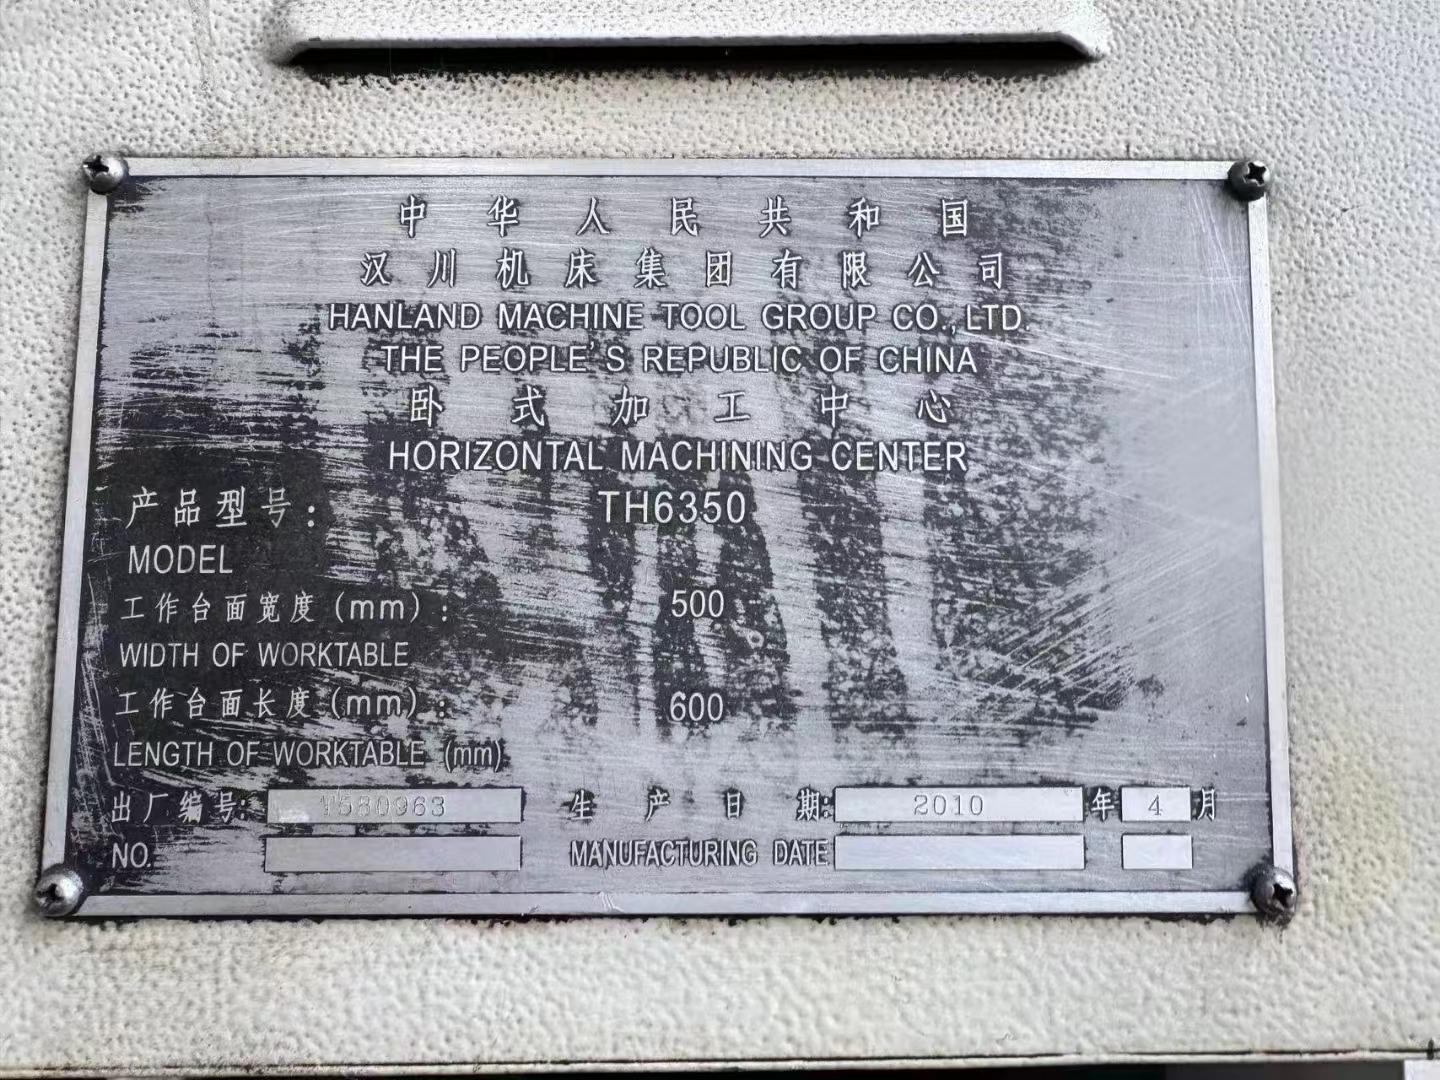 中华人民共和国
汉川机床集团有限公司
HANLAND MACHINE TOOL GROUP CO.,LTD.
THE PEOPLE'S REPUBLIC OF CHINA
卧式加工中心
HORIZONTAL MACHINING CENTER
产品型号: TH6350
MODEL
工作台面宽度(mm): 500
WIDTH OF WORKTABLE
工作台面长度(mm): 600
LENGTH OF WORKTABLE (mm)
出厂编号: 生产日期: 2010 年 4 月
NO. MANUFACTURING DATE